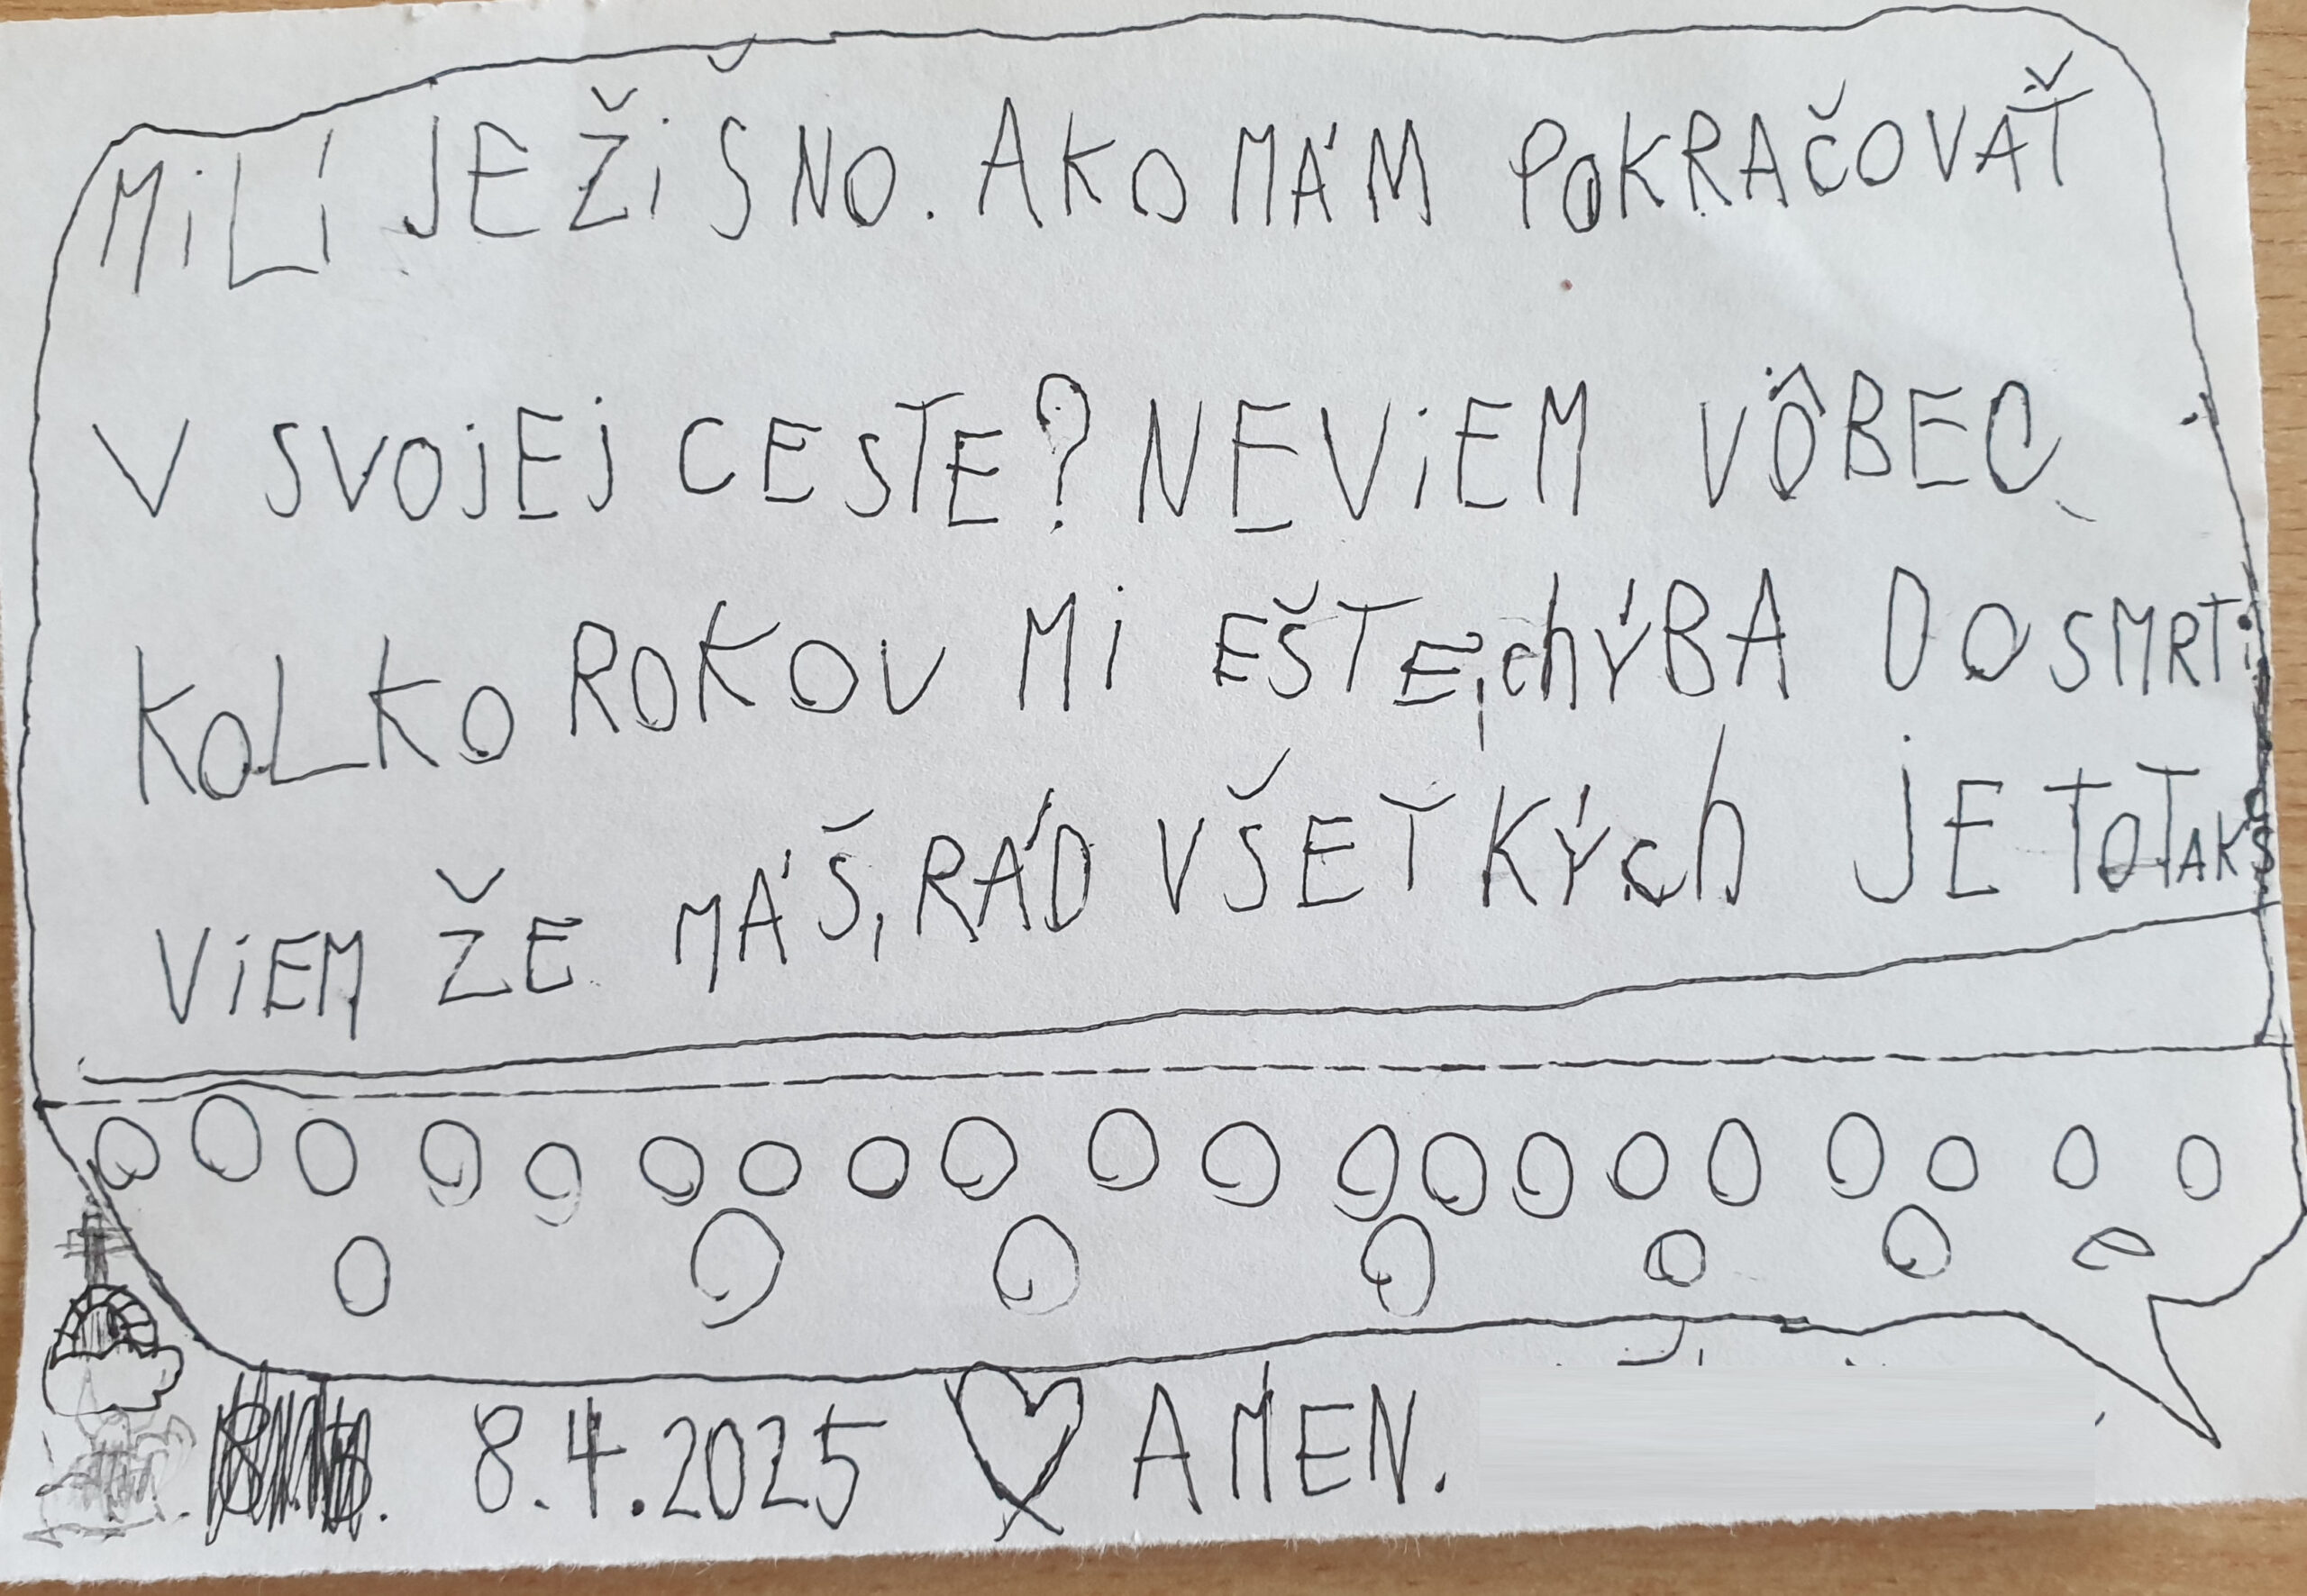 MiLí JEŽiŠNO. AKO MÁM POKRAČOVAŤ
V SVOJEJ CESTE? NEViEM VÔBEC
KOLKO ROKOV Mi EŠTE, chÝBA DO SMRTi
ViEM ŽE MÁŠ, RÁD VŠETKÝch JE TOTAKŠ
8.4.2025 AMEN.